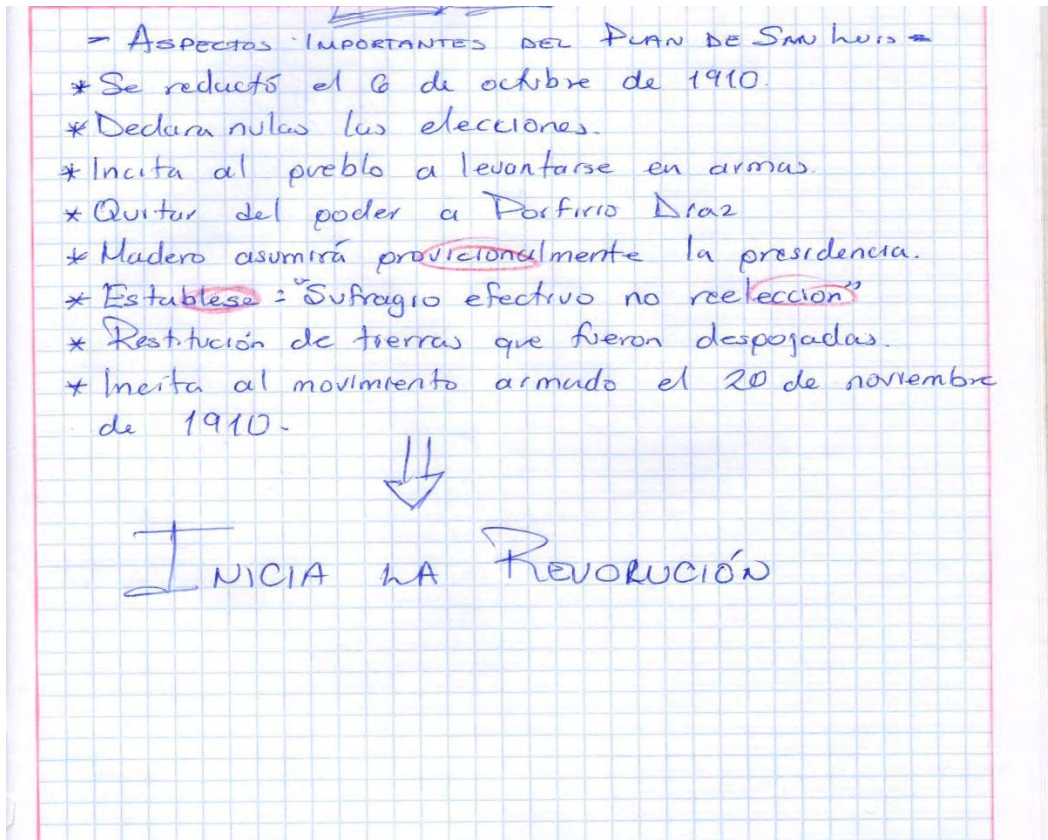 - ASPECTOS IMPORTANTES DEL PLAN DE SAN LUIS -
* Se reductó el 6 de octubre de 1910.
* Declara nulas las elecciones.
* Incita al pueblo a levantarse en armas.
* Quitar del poder a Porfirio Díaz
* Madero asumirá provicionalmente la presidencia.
* Establese = "Sufragio efectivo no reeleccion"
* Restitución de tierras que fueron despojadas.
* Incita al movimiento armado el 20 de noviembre
de 1910.
INICIA LA REVORUCIÓN